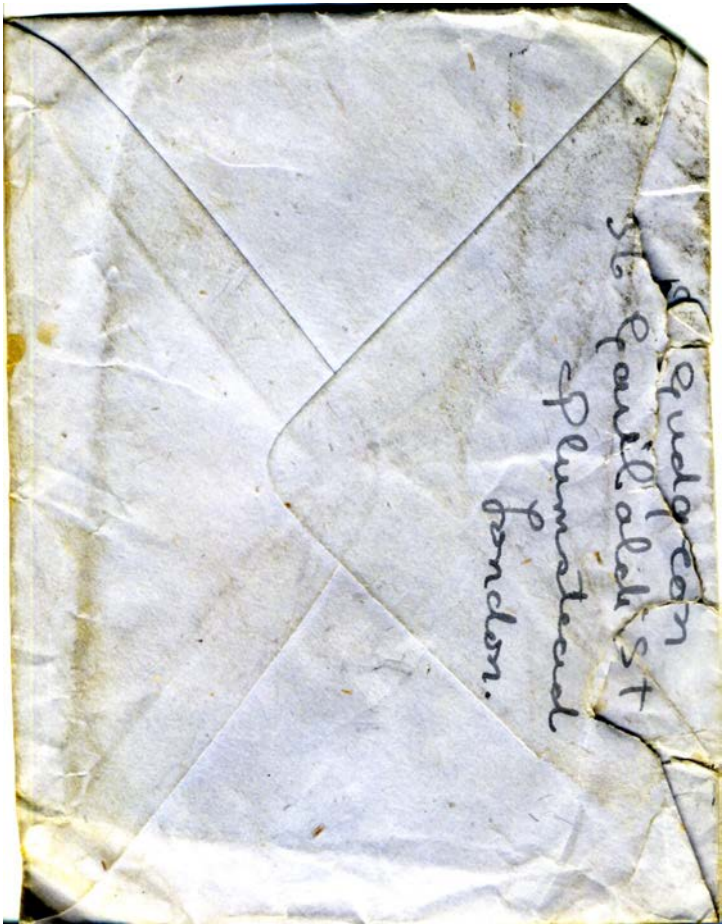 Gudgeon
36 Garibaldi St
Plumstead
London.